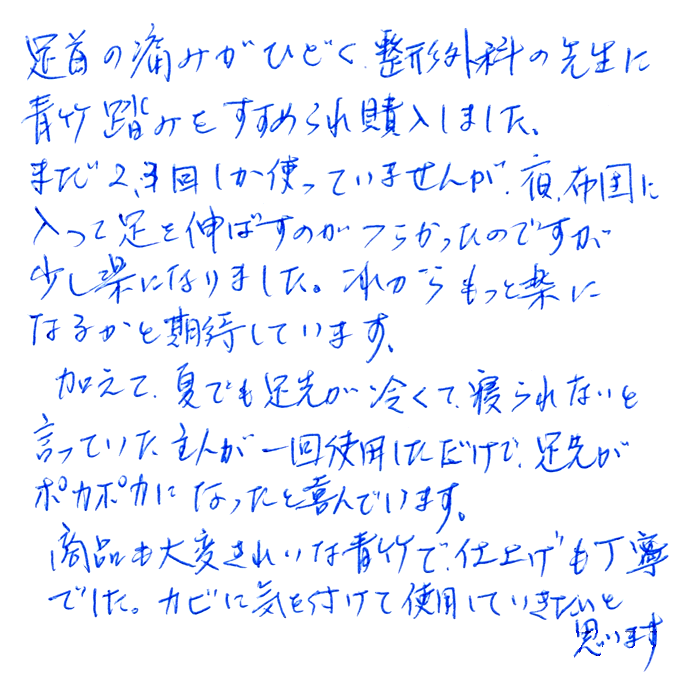 足首の痛みがひどく、整形外科の先生に
青竹踏みをすすめられ購入しました、
まだ2,3回しか使っていませんが、夜、布団に
入って足を伸ばすのがつらかったのですが
少し楽になりました。これからもっと楽に
なるかと期待しています、
加えて、夏でも足先が冷くて、寝られないと
言っていた主人が一回使用しただけで、足先が
ポカポカになったと喜んでいます。
商品も大変きれいな青竹で、仕上げも丁寧
でした。カビに気を付けて使用していきたいと
思います